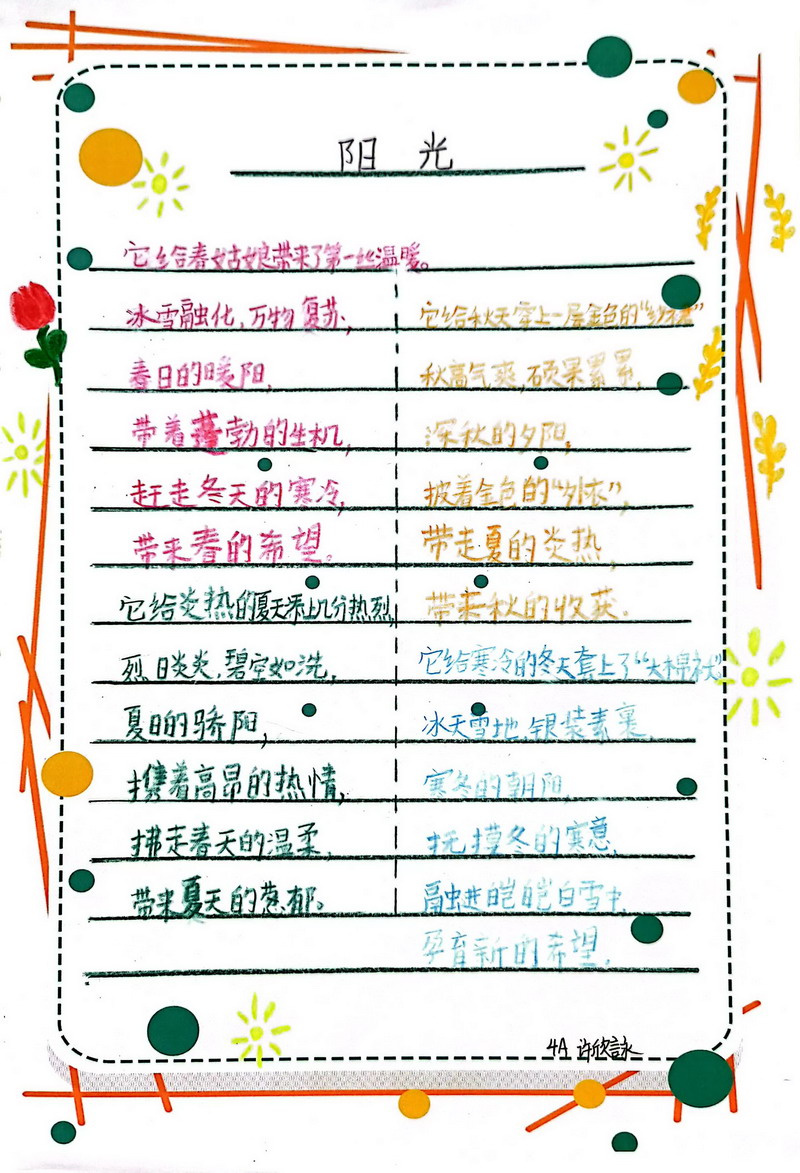 阳 光
它给春姑娘带来了第一丝温暖。
冰雪融化,万物复苏,
春日的暖阳,
带着蓬勃的生机,
赶走冬天的寒冷,
带来春的希望。
它给炎热的夏天添上几分热烈,
烈日炎炎,碧空如洗,
夏日的骄阳,
携着高昂的热情,
拂走春天的温柔,
带来夏天的葱郁。
它给秋天穿上一层金色的“纱衣”
秋高气爽,硕果累累,
深秋的夕阳,
披着金色的“外衣”,
带走夏的炎热,
带来秋的收获.
它给寒冷的冬天套上了“大棉袄”
冰天雪地,银装素裹,
寒冬的朝阳,
抚摸冬的寒意,
融进皑皑白雪中,
孕育新的希望.
4A 许欣詠